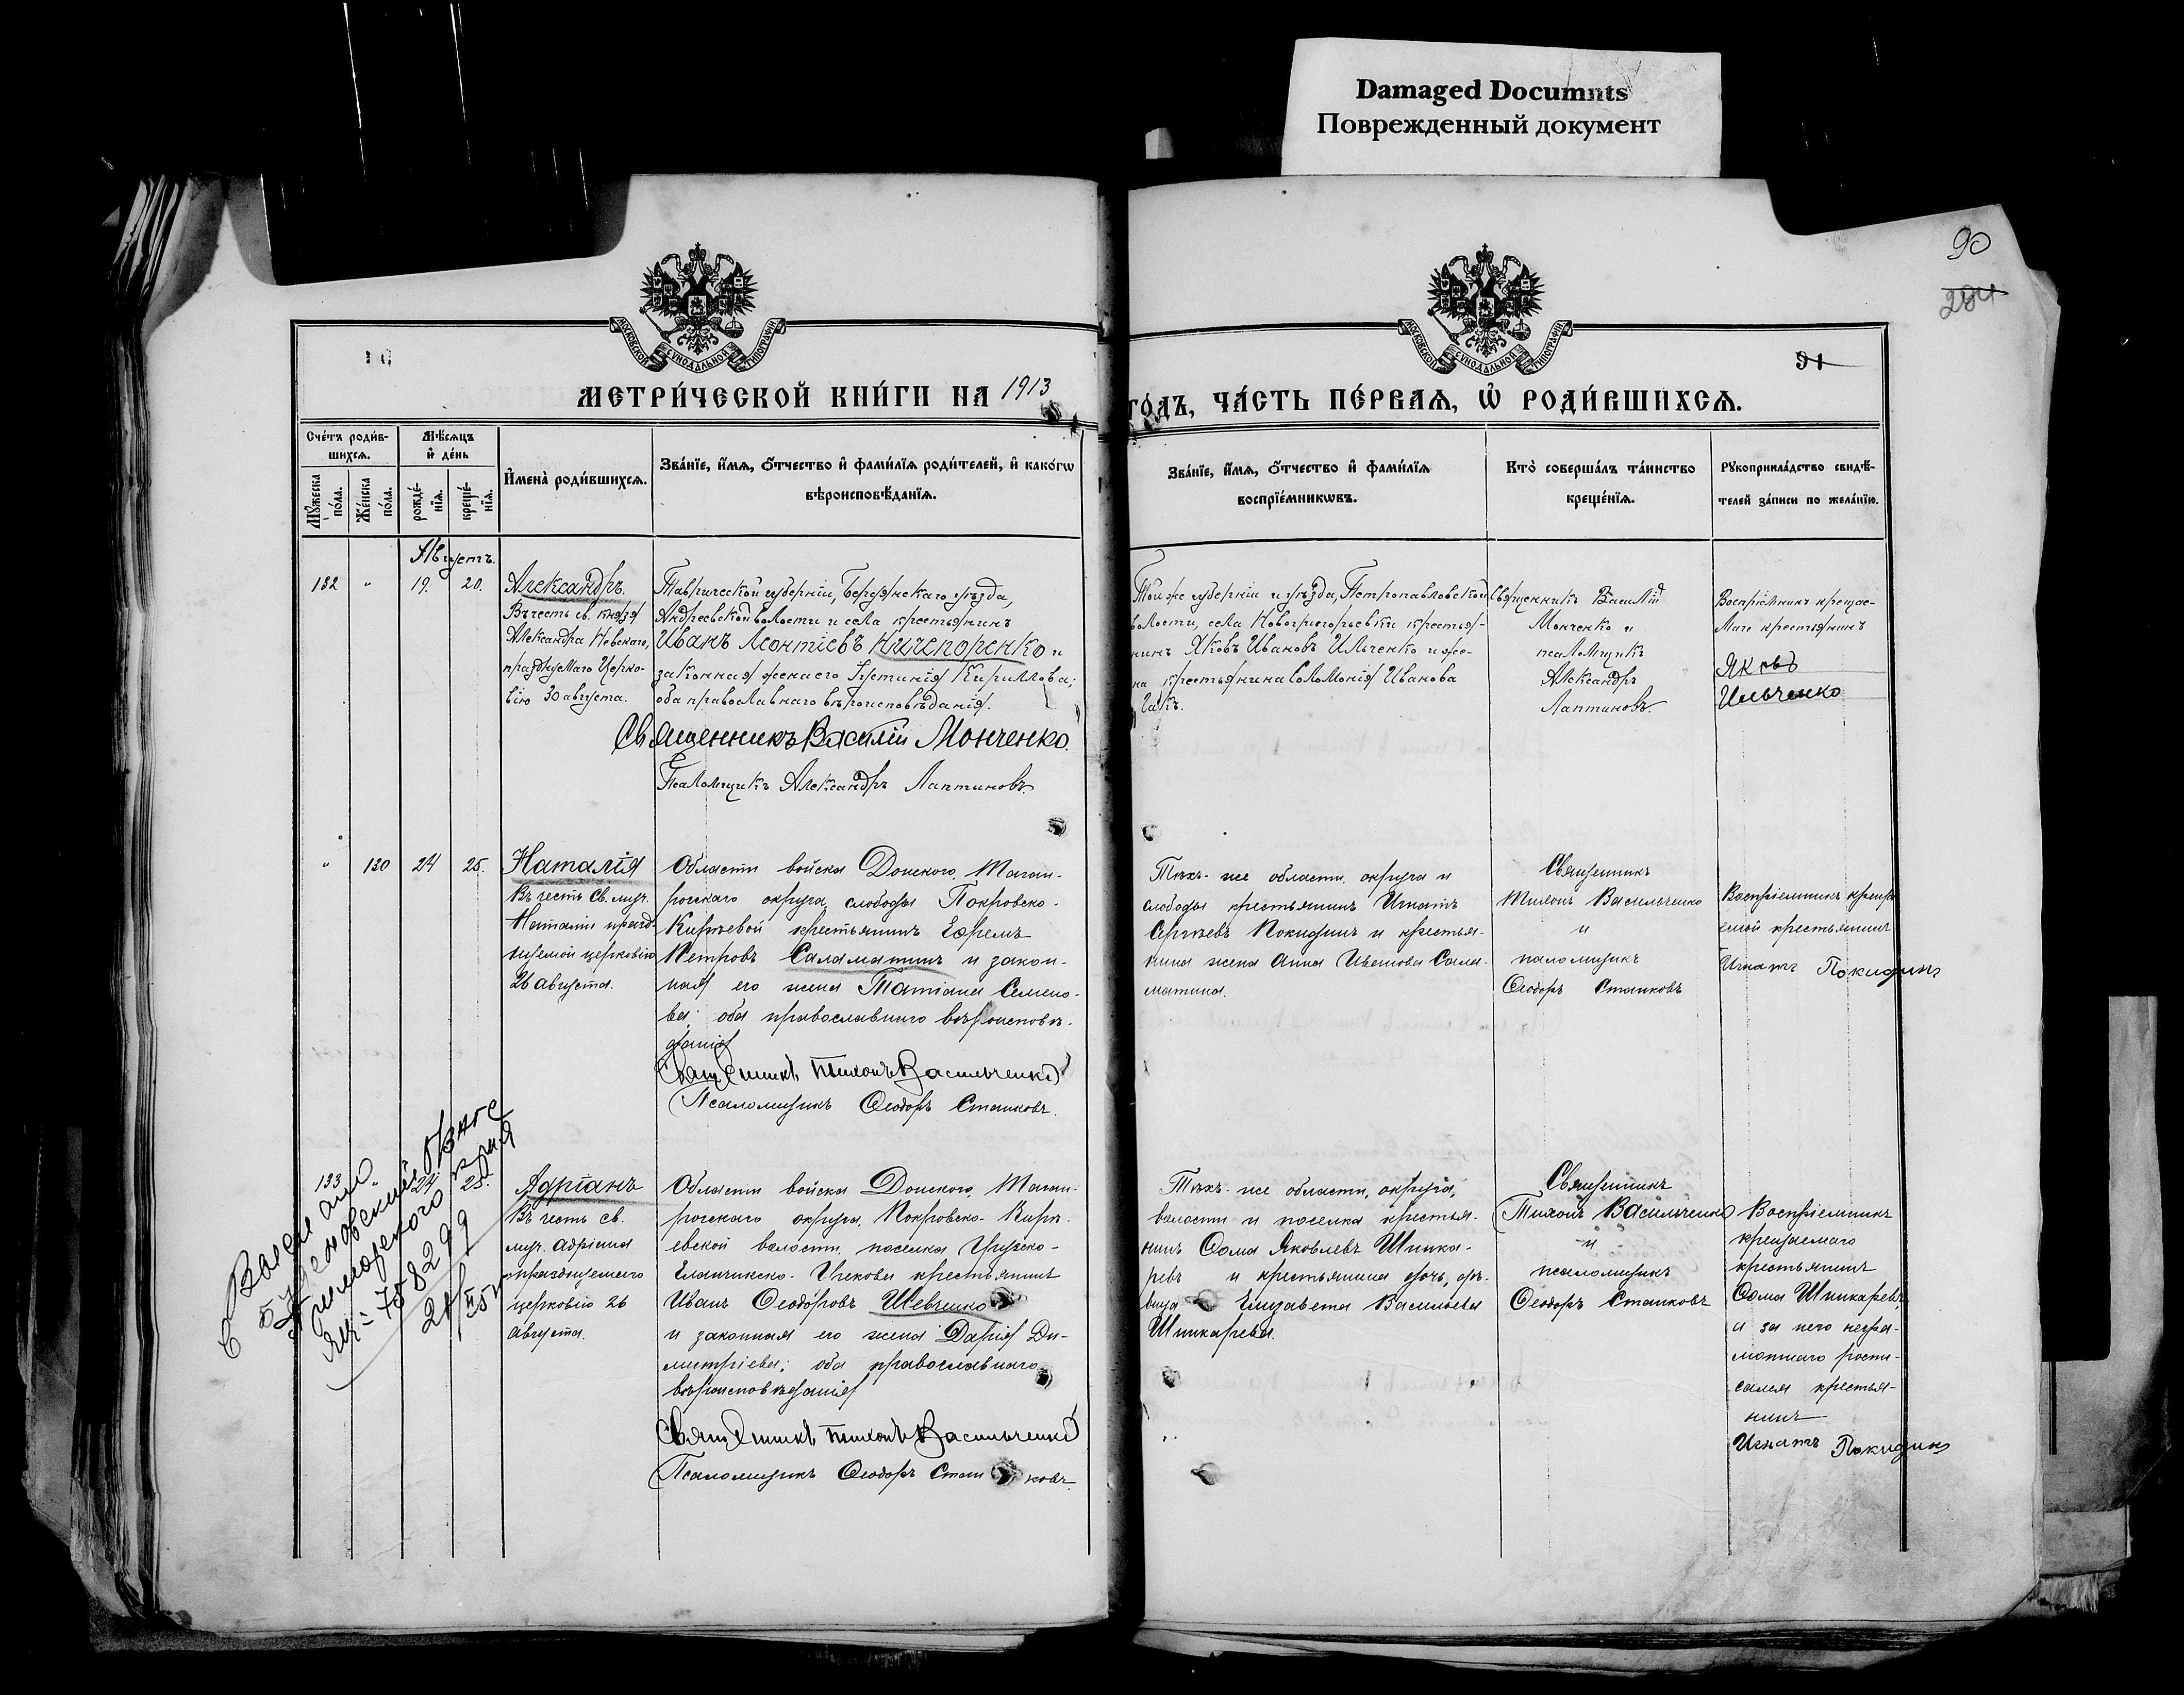 Damaged Documnts
Поврежденный документ
90
284
91
МОСКОВСКОЙ СѴНОДАЛЬНОЙ ТИПОГРАФІИ
МОСКОВСКОЙ СѴНОДАЛЬНОЙ ТИПОГРАФІИ
МЕТРИ́ЧЕСКОЙ КНИ́ГИ НА 1913
ГО́ДЪ, ЧА́СТЬ ПЕ́РВАЯ, Ѡ҆ РОДИ́ВШИХСЯ.
Сче́тъ роди́в-
шихся.
Мѣ́сяцъ
и҆ де́нь
Му́жеска по́ла.
Же́нска по́ла.
рожде́-
нїя.
креще́-
нїя.
И҆мена̀ роди́вшихся.
Зва́нїе, и҆́мя, ѻ҆́тчество и҆ фами́лїя роди́телей, и҆ како́гѡ
вѣроисповѣ́данїя.
Зва́нїе, и҆́мя, ѻ҆́тчество и҆ фами́лїя
воспрїе́мникѡвъ.
Кто̀ соверша́лъ та́инство
креще́нїя.
Рꙋкоприкла́дство свидѣ́-
телей за́писи по жела́нїю.
Августъ.
132 " 19. 20.
Александръ.
Въ честь св. князя
Александра Невскаго,
празднуемаго Церко-
вію 30 августа.
Таврической губерніи, Бердянскаго уѣзда,
Андреевской волости и села крестьянинъ
Иванъ Леонтіевъ Ничепоренко и
законная жена его Іустинія Кириллова;
оба православнаго вѣроисповѣданія.
Священникъ Василій Монченко.
Псаломщикъ Александръ Лаптиновъ.
Той же губерніи и уѣзда, Петропавловской
волости, села Новогригорьевки крестья-
нинъ Яковъ Ивановъ Ильченко и же-
на крестьянина Соломонія Иванова
Гакъ.
Священникъ Василій
Монченко и
псаломщикъ
Александръ
Лаптиновъ.
Воспріемникъ крещае-
маго крестьянинъ
Яковъ
Ильченко
" 130 24 25.
Наталія
Въ честь Св. муч.
Наталіи празд-
нуемой церковію
26 августа.
Области войска Донского, Таган-
рогскаго округа, слободы Покровско-
Кирѣевой крестьянинъ Ефремъ
Петровъ Саламатинъ и закон-
ная его жена Татіана Семено-
ва; оба православнаго вѣроисповѣ-
данія
Священникъ Тихонъ Васильченко
Псаломщикъ Ѳеодоръ Станковъ.
Тѣхъ-же области, округа и
слободы крестьянинъ Игнатъ
Сергѣевъ Покидинъ и крестья-
нина жена Анна Иванова Сала-
матина.
Священникъ
Тихонъ Васильченко
и
псаломщикъ
Ѳеодоръ Станковъ
Воспріемникъ креща-
емой крестьянинъ
Игнатъ Покидинъ
133 " 24 25.
Адріанъ
Въ честь св.
муч. Адріана
празднуемаго
церковію 26
августа.
Области войска Донского, Таган-
рогскаго округа, Покровско-Кирѣ-
евской волости, поселка
крестьянинъ
Иванъ Ѳеодоровъ Шевченко
и законная его жена Дарія Ди-
митріева; оба православнаго
вѣроисповѣданія
Священникъ Тихонъ Васильченко
Псаломщикъ Ѳеодоръ Станковъ.
Тѣхъ-же области, округа,
волости и поселка крестья-
нинъ Ѳома Яковлевъ Шинка-
ревъ и крестьянина дочь, дѣ-
вица Елизавета Васильева
Шинкарева.
Священникъ
Тихонъ Васильченко
и
псаломщикъ
Ѳеодоръ Станковъ
Воспріемникъ
крещаемаго
крестьянинъ
Ѳома Шинкаревъ,
а за него негра-
мотнаго роспи-
сался крестья-
нинъ
Игнатъ Покидинъ
Приморского края
758299